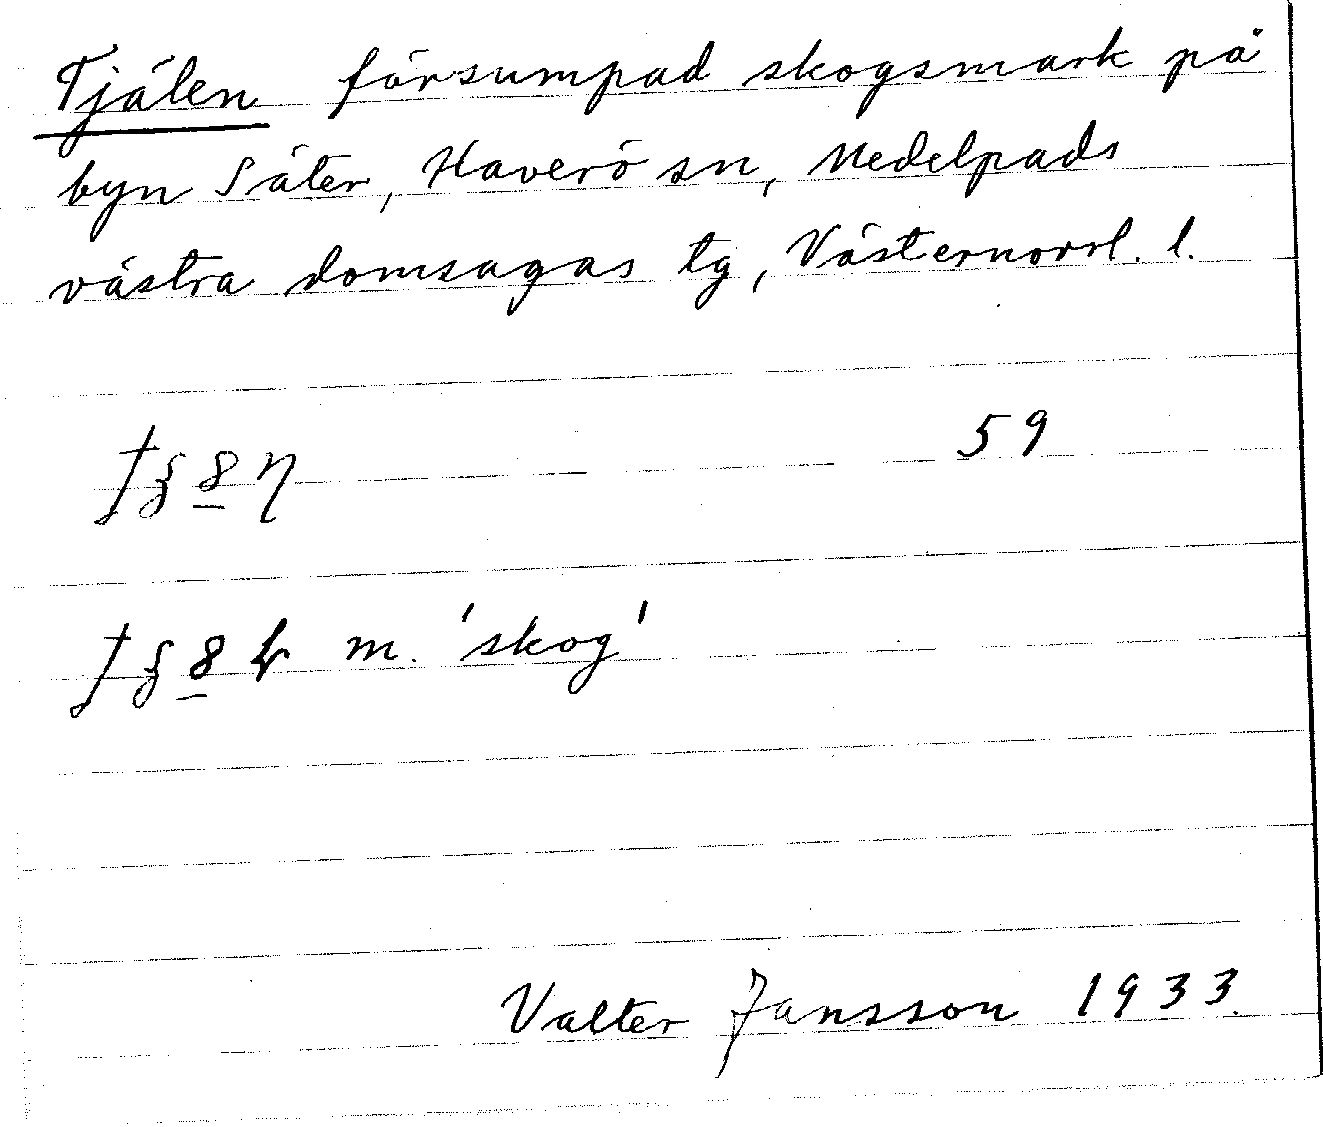 Tjälen försumpad skogsmark på
byn Säter, Haverö sn, Medelpads
västra domsagas tg, Västernorrl. l.
59
m. 'skog'
Valter Jansson 1933.